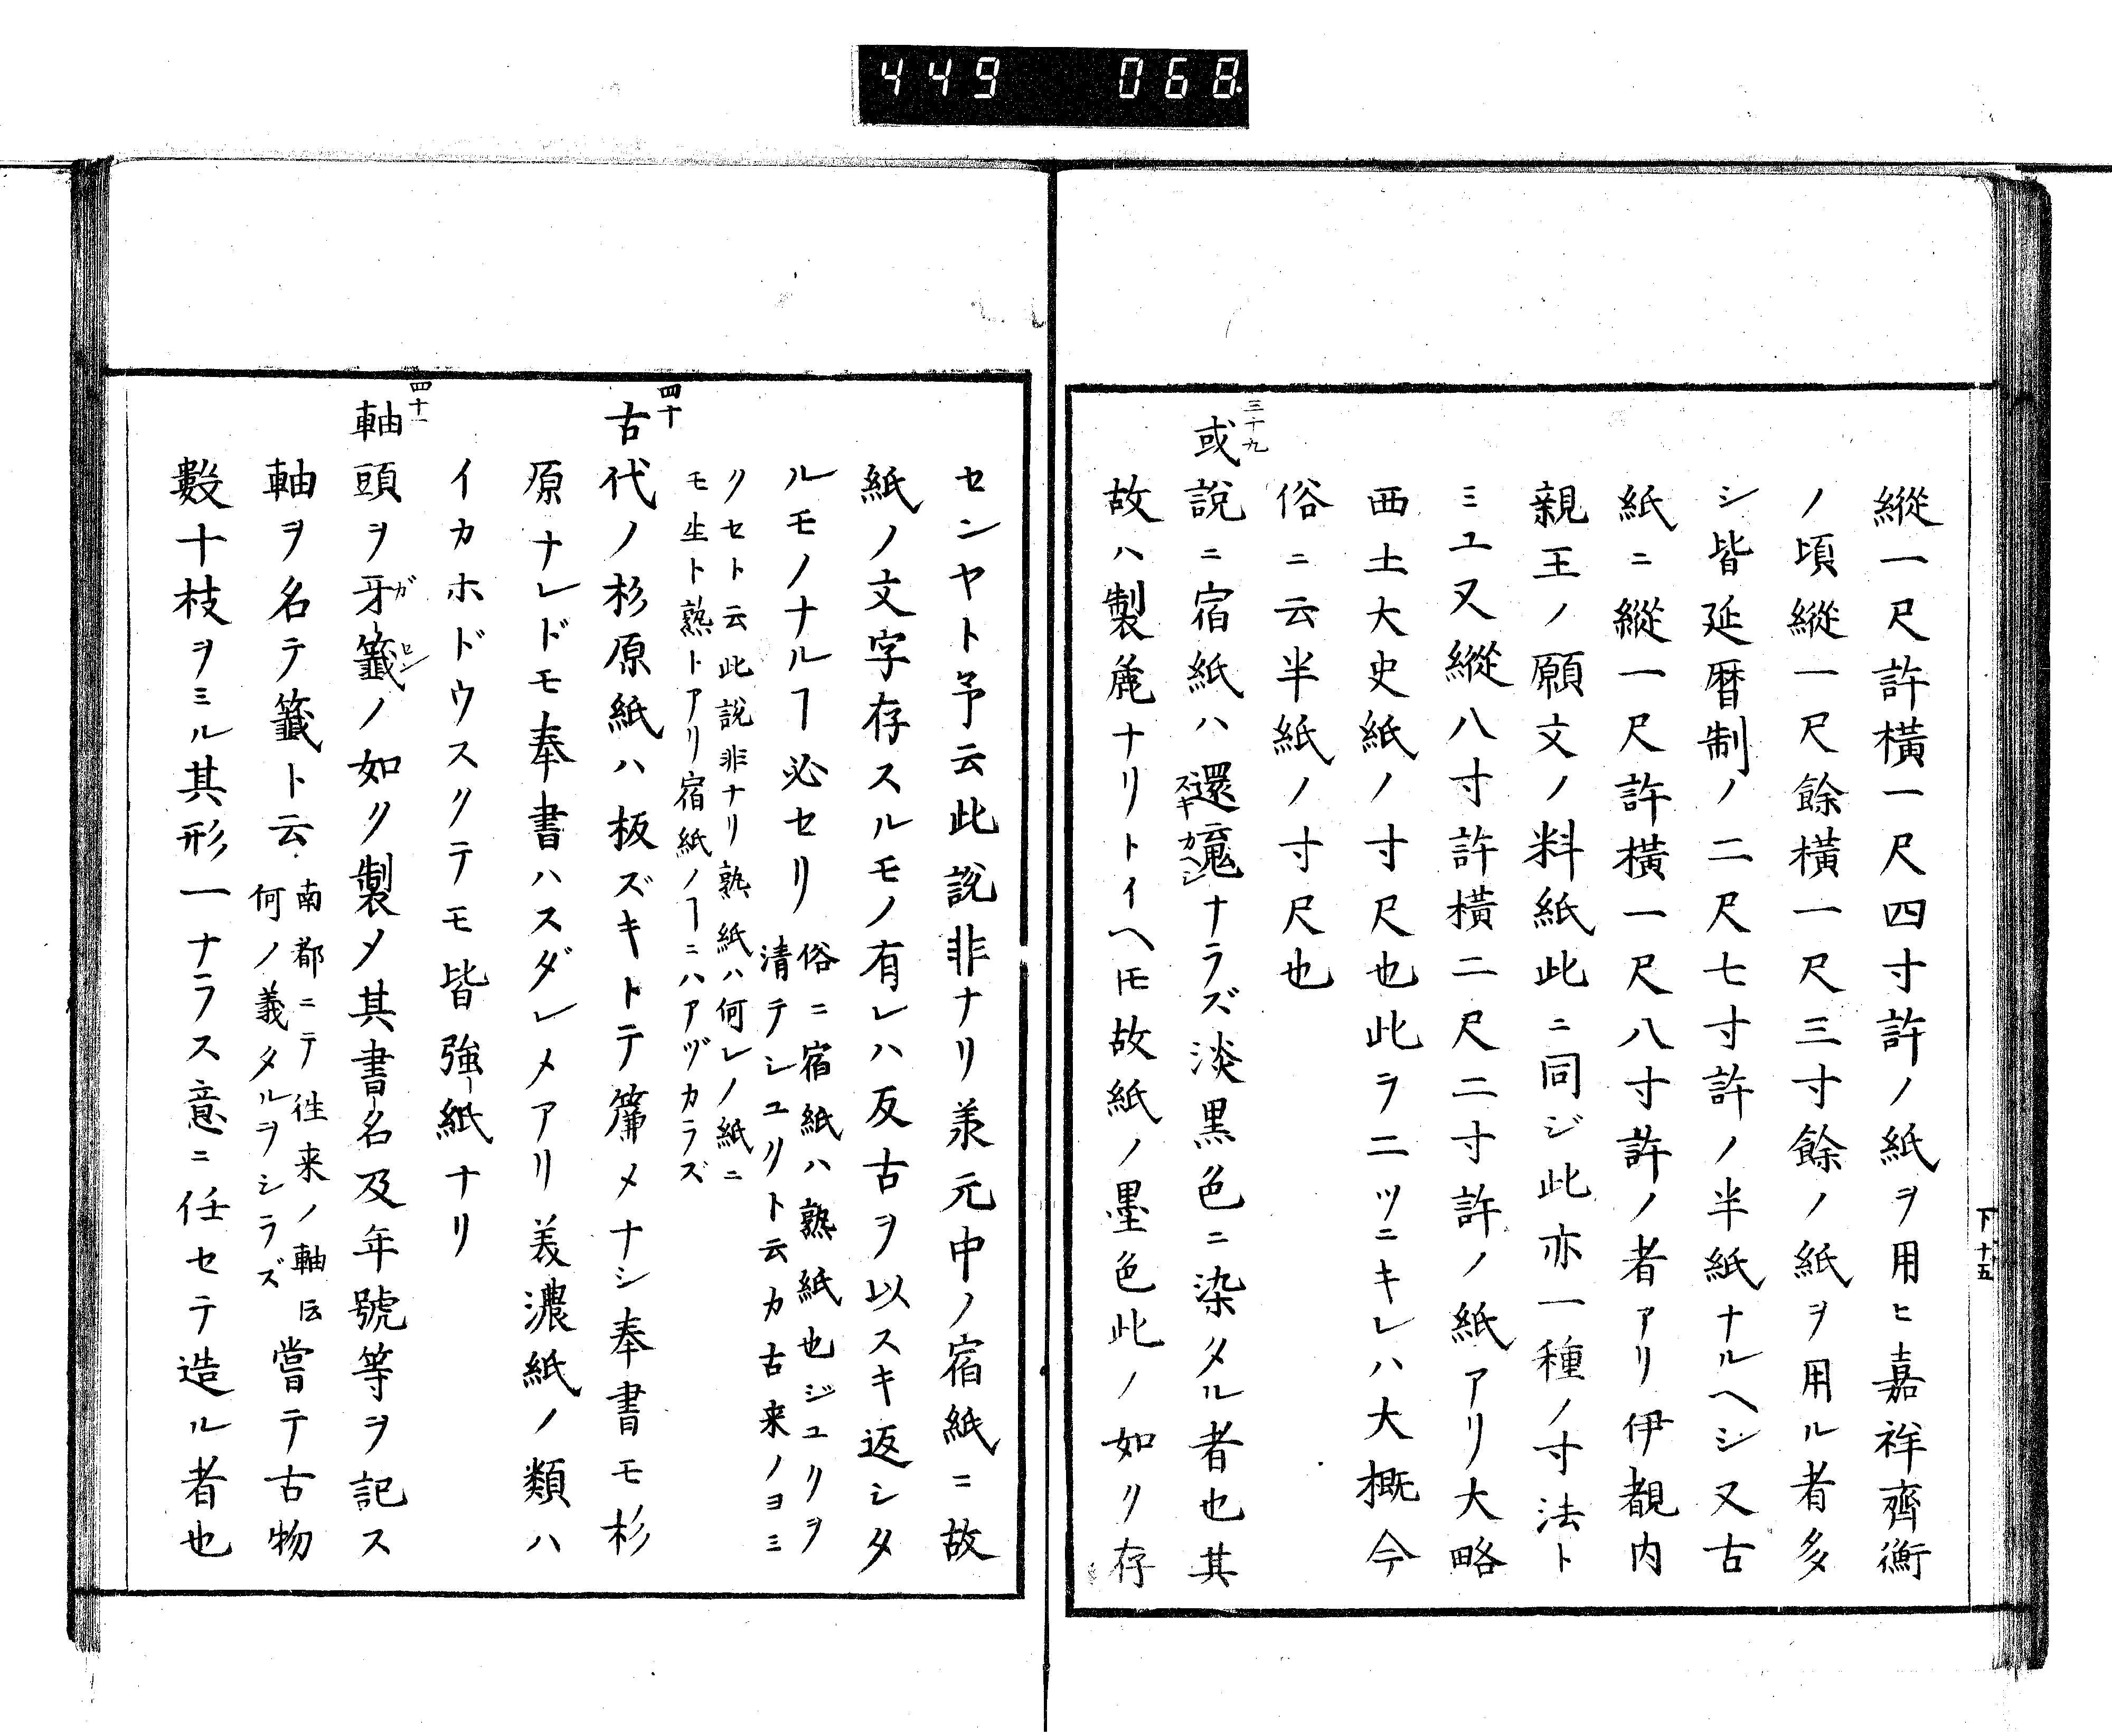 449 068
下十五
縱一尺許橫一尺四寸許ノ紙ヲ用ヒ嘉祥齊衡
ノ頃縱一尺餘橫一尺三寸餘ノ紙ヲ用ル者多
シ皆延暦制ノ二尺七寸許ノ半紙ナルヘシ又古
紙ニ縱一尺許橫一尺八寸許ノ者アリ伊覩内
親王ノ願文ノ料紙此ニ同ジ此亦一種ノ寸法ト
ミユ又縱八寸許橫二尺二寸許ノ紙アリ大略
西土大史紙ノ寸尺也此ラ二ツニキレハ大概今
俗ニ云半紙ノ寸尺也
三十九
或說ニ宿紙ハ還魂ナラズ淡黒色ニ染タル者也其
スキカヘシ
故ハ製麁ナリトイヘ𪜈故紙ノ墨色此ノ如ク存
センヤト予云此說非ナリ羕元中ノ宿紙ニ故
紙ノ文字存スルモノ有レハ反古ヲ以スキ返シタ
ルモノナルヿ必セリ
俗ニ宿紙ハ熟紙也ジユクヲ
清テシユクト云カ古来ノヨミ
クセト云此說非ナリ熟紙ハ何レノ紙ニ
モ生ト熟トアリ宿紙ノヿニハアヅカラズ
四十
古代ノ杉原紙ハ板ズキトテ簾メナシ奉書モ杉
原ナレドモ奉書ハスダレメアリ美濃紙ノ類ハ
イカホドウスクテモ皆強紙ナリ
四十一
軸頭ヲ牙籤ノ如ク製〆其書名及年號等ヲ記ス
ガ セン
軸ヲ名テ籤ト云
南都ニテ徃来ノ軸𪜈
何ノ義タルヲシラズ
嘗テ古物
數十枝ヲミル其形一ナラス意ニ任セテ造ル者也